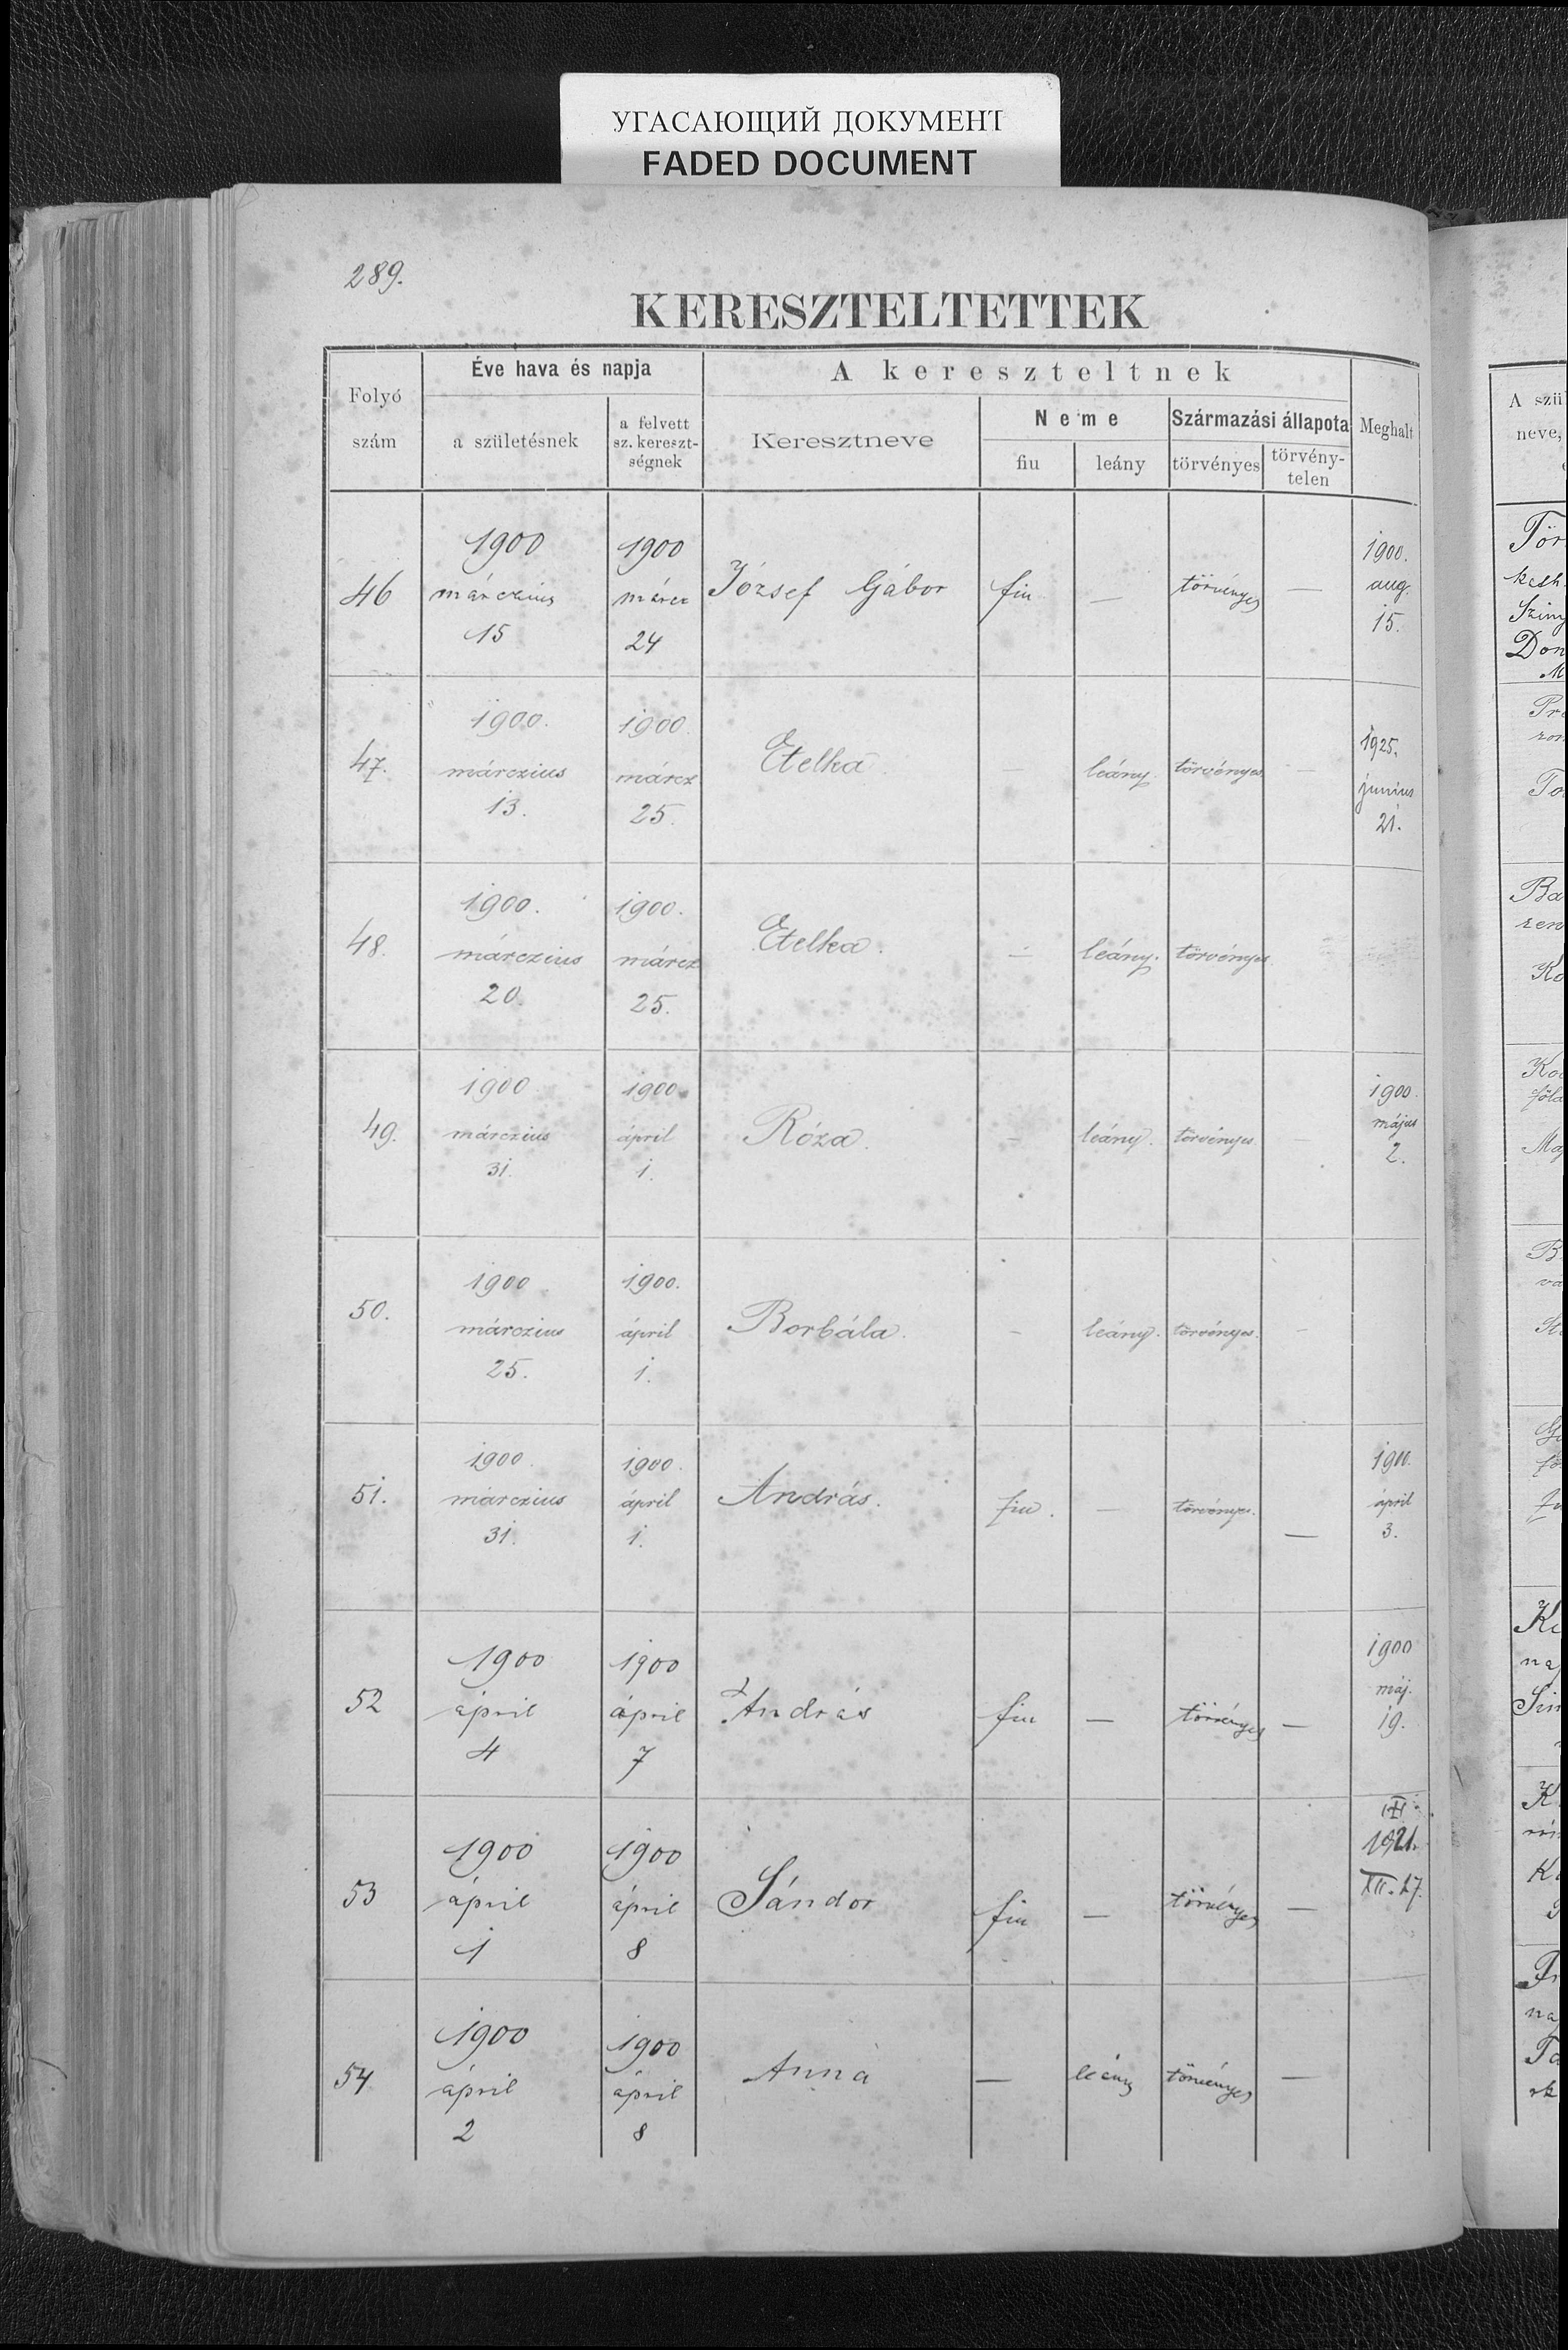 УГАСАЮЩИЙ ДОКУМЕНТ
FADED DOCUMENT
289.
KERESZTELTETTEK
Folyó szám
Éve hava és napja
a születésnek
a felvett sz. kereszt-ségnek
A kereszteltnek
Keresztneve
Neme
fiu
leány
Származási állapota
törvényes
törvény-telen
Meghalt
46
1900 márczius 15
1900 márcz 24
József Gábor
fiu
—
törvényes
—
1900. aug. 15.
47.
1900. márczius 13.
1900. márcz 25.
Etelka
—
leány.
törvényes
—
1925. junius 21.
48.
1900. márczius 20.
1900. márcz 25.
Etelka.
—
leány.
törvényes
49.
1900 márczius 31.
1900. ápril 1.
Róza.
—
leány.
törvényes.
—
1900. május 2.
50.
1900. márczius 25.
1900. ápril 1.
Borbála.
—
leány.
törvényes.
—
51.
1900. márczius 31.
1900. ápril 1.
András.
fiu.
—
törvényes.
—
1900. ápril 3.
52
1900 ápril 4
1900 ápril 7
András
fiu
—
törvényes
—
1900 máj. 19.
53
1900 ápril 1
1900 ápril 8
Sándor
fiu
—
törvényes
—
1921. XII. 27.
54
1900 ápril 2
1900 ápril 8
Anna
—
leány
törvényes
—
A szü
neve,
Tör
kesh
Don
To
Ba
ren
Ko
Ma
B
va
Ke
na
K
na